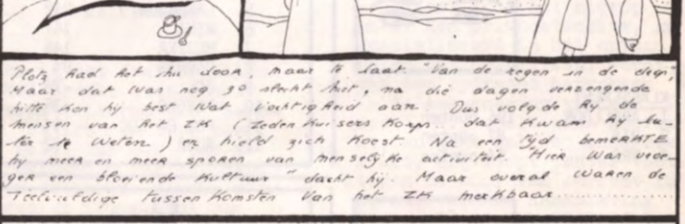 Plotz had het nu door, maar te laat. "Van de regen in de drup,
Maar dat was nog zo slecht niet, na die dagen verzengende
hitte kon hij best wat vochtigheid aan. Dus volgde hij de
mensen van het ZK (Zeden Kuisers Korps.. dat kwam hij la-
ter te weten) en hield zich koest. Na een tijd bemerkte
hij meer en meer sporen van menselijke activiteit. "Hier was vroe-
ger een bloeiende kultuur" dacht hij. Maar overal waren de
veelvuldige tussenkomsten van het ZK merkbaar